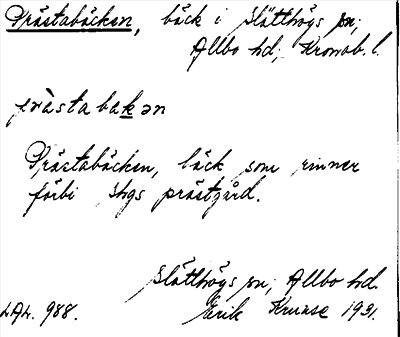 Prästabäcken, bäck i Slätthögs sn;
Allbo hd; Kronob. l.
prästabakən
Prästabäcken, bäck som rinner
förbi Shgs prästgård.
Slätthögs sn; Allbo hd.
LAL. 988. Erik Kruuse 1931.